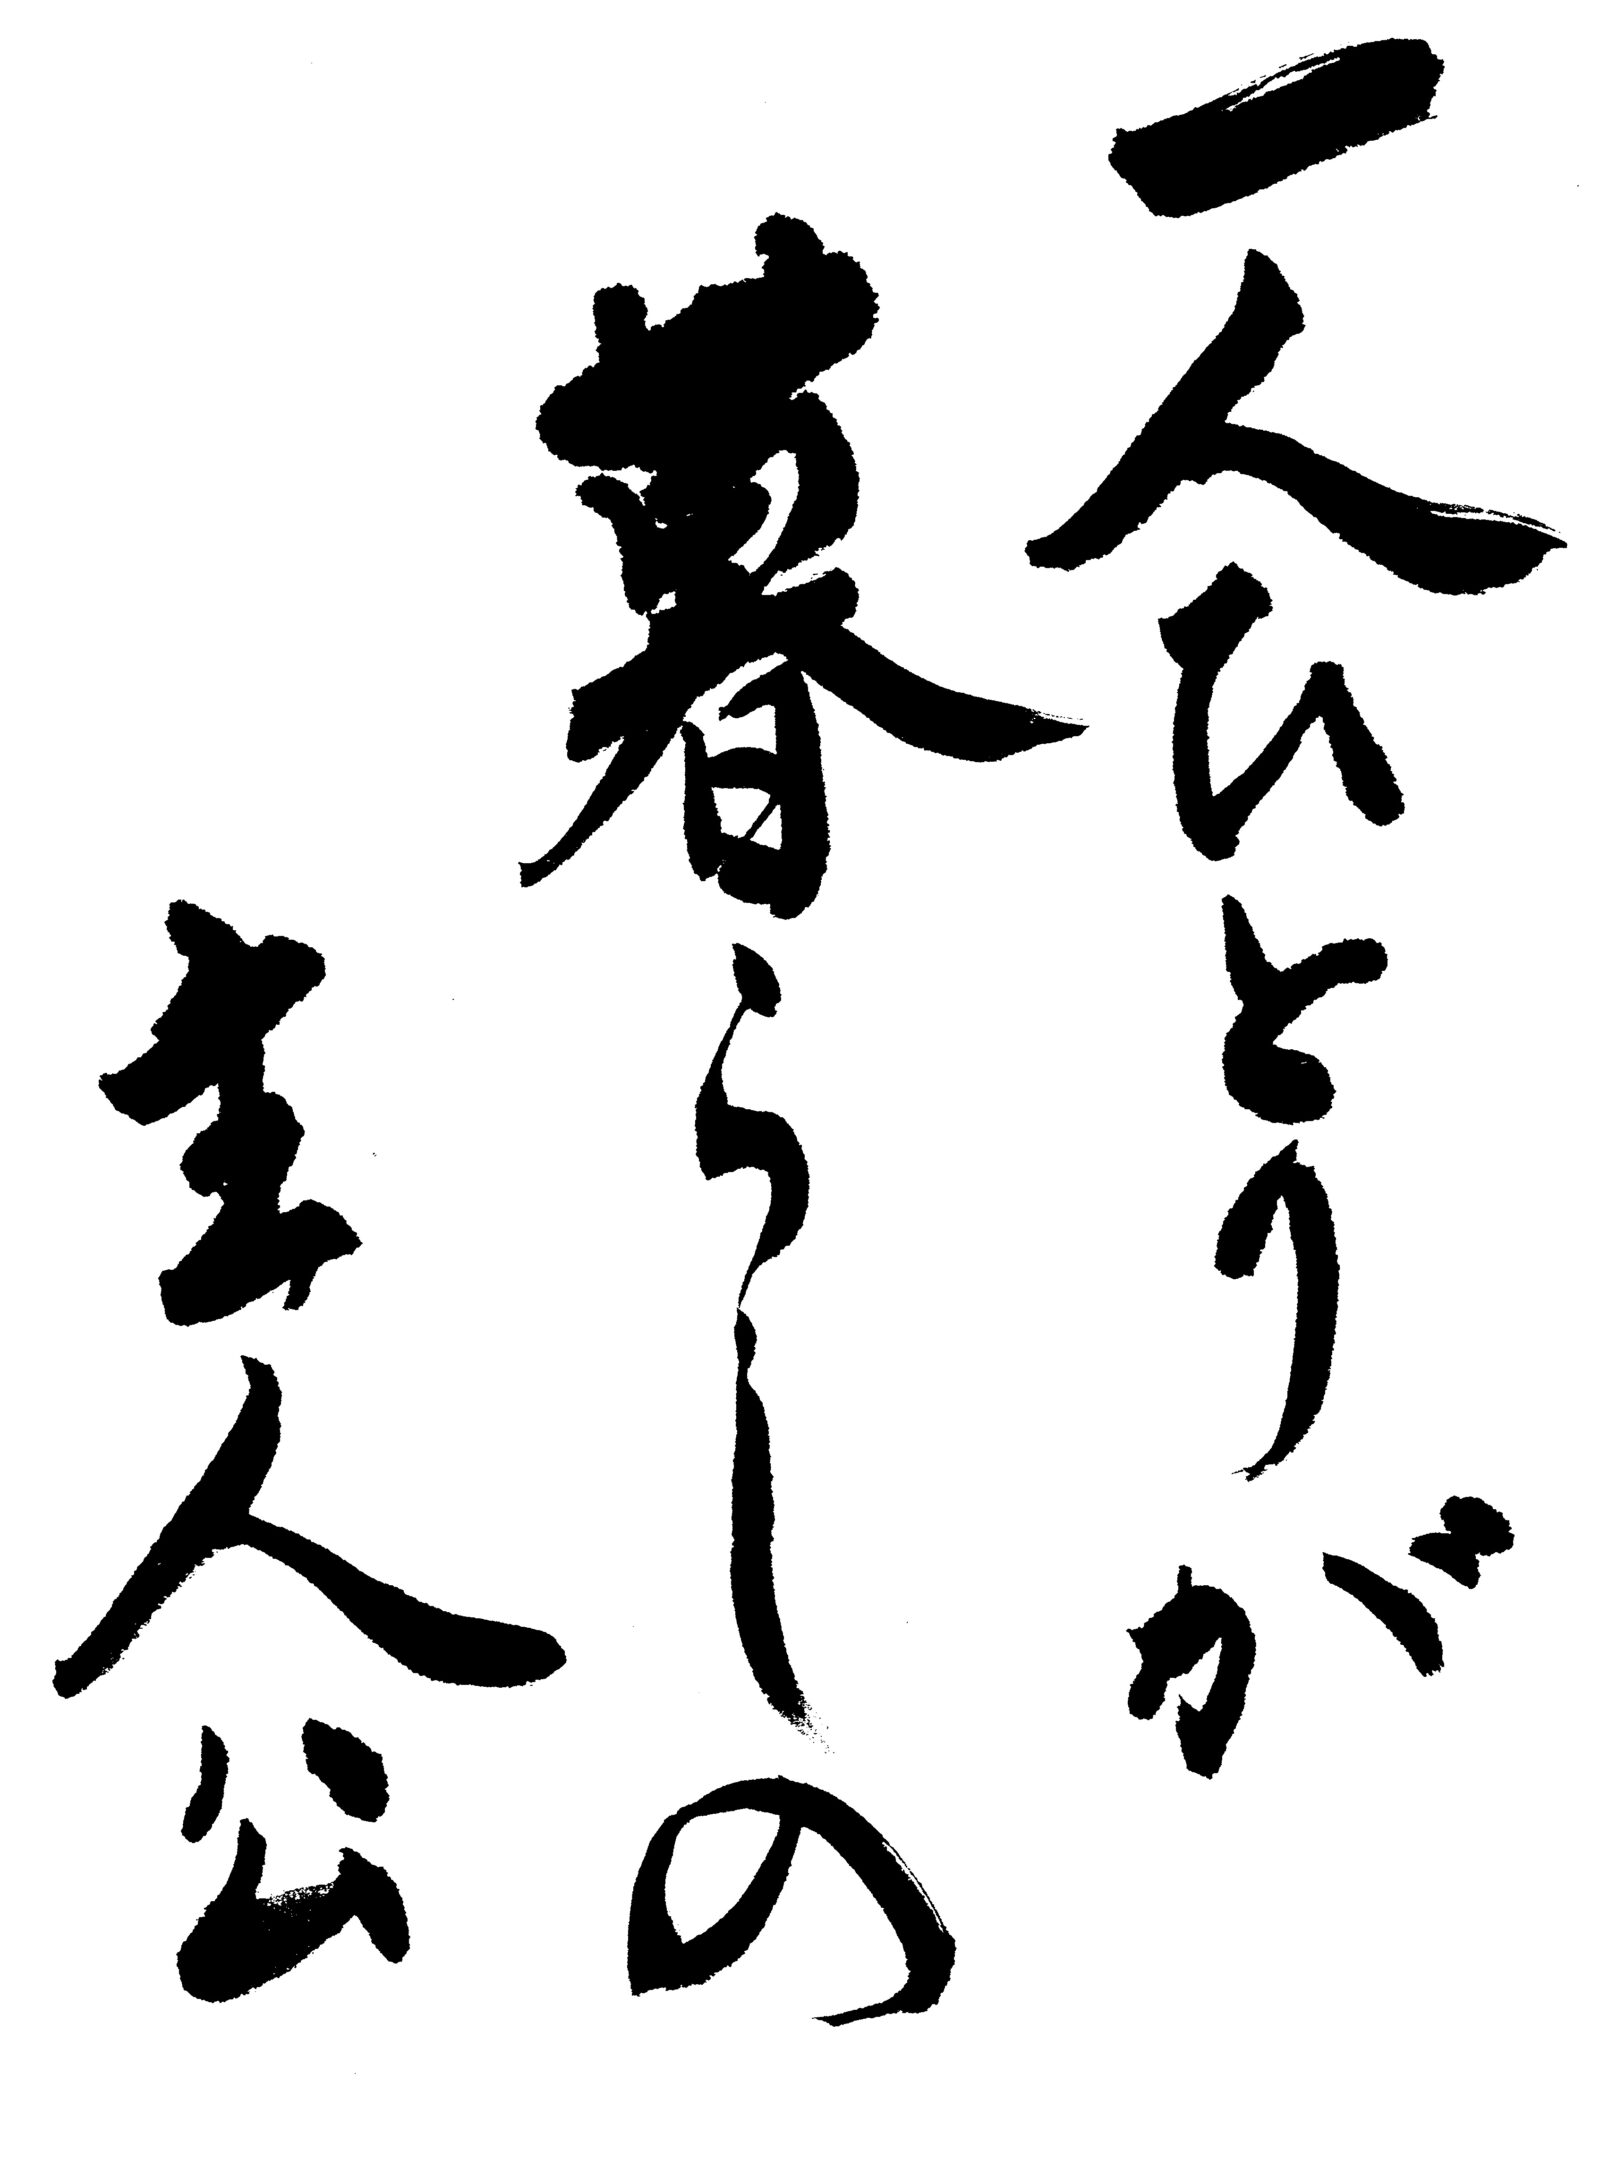 一人ひとりが
暮らしの
主人公